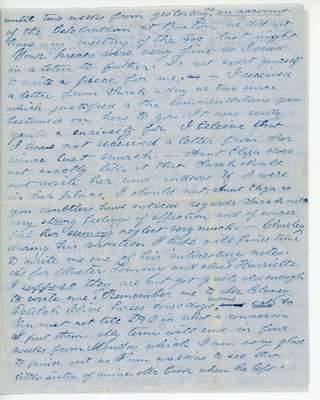 until two weeks from yesterday on account
of the Celebration at     we did not
have any meeting of the Soc last night
Your pieces were very fine as I said
in a letter to father. I do not expect yourself
to write a piece for me. — I received
a letter from Sarah a day or two since
which justified a the commendations you
bestowed on hers to you. It was really
quite a curiosity for I beleive that
I have not received a letter from her
since last March. — Aunt Eliza does
not exactly like it that Sarah should
not write her and indeed if I were
in her place, I should not. Aunt Eliza as
you doubtless have noticed regards Sarah with
very strong feelings of affection and of course
felt her seeming neglect very much. — Charley
during his vacation I hope will find time
to write me one of his interesting notes
As for Master Tommy and Miss Henrietta
I suppose they are not yet quite old enough
to write me. Remember me to Mr
Delilah Olive
You must not let     in what a connexion
I put them. My term will end in four
weeks from Monday which I am very glad
to find out as I am anxious to see that
little sister of mine. Mr Cook when he left